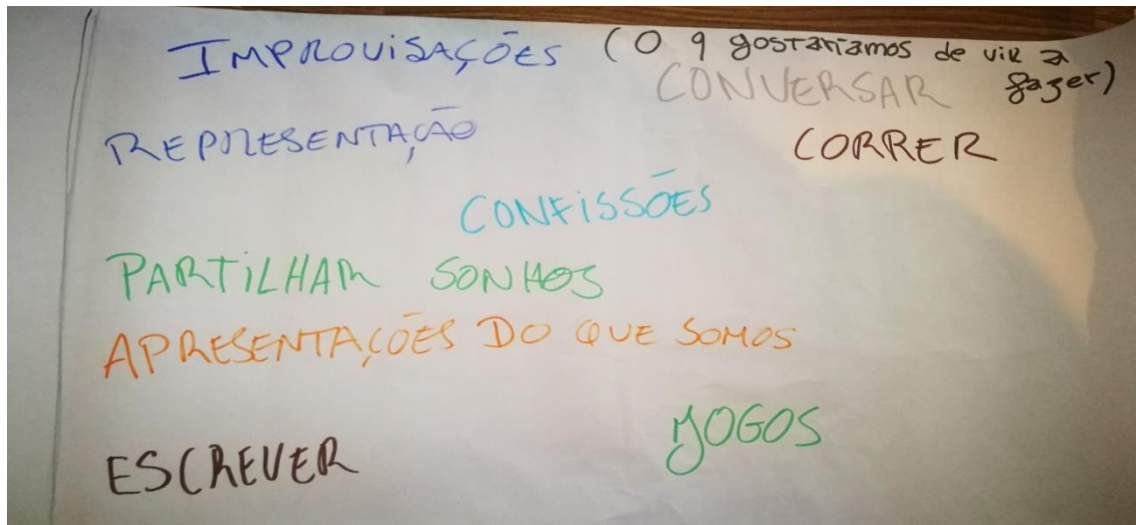 IMPROVISAÇÕES (O q gostaríamos de vir a
fazer)
CONVERSAR
REPRESENTAÇÃO
CORRER
CONFISSÕES
PARTILHAR SONHOS
APRESENTAÇÕES DO QUE SOMOS
JOGOS
ESCREVER